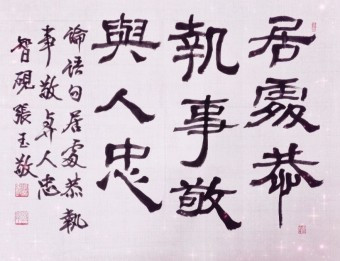 居處恭
執事敬
與人忠
論語句居處恭執
事敬與人忠
智硯張玉敬